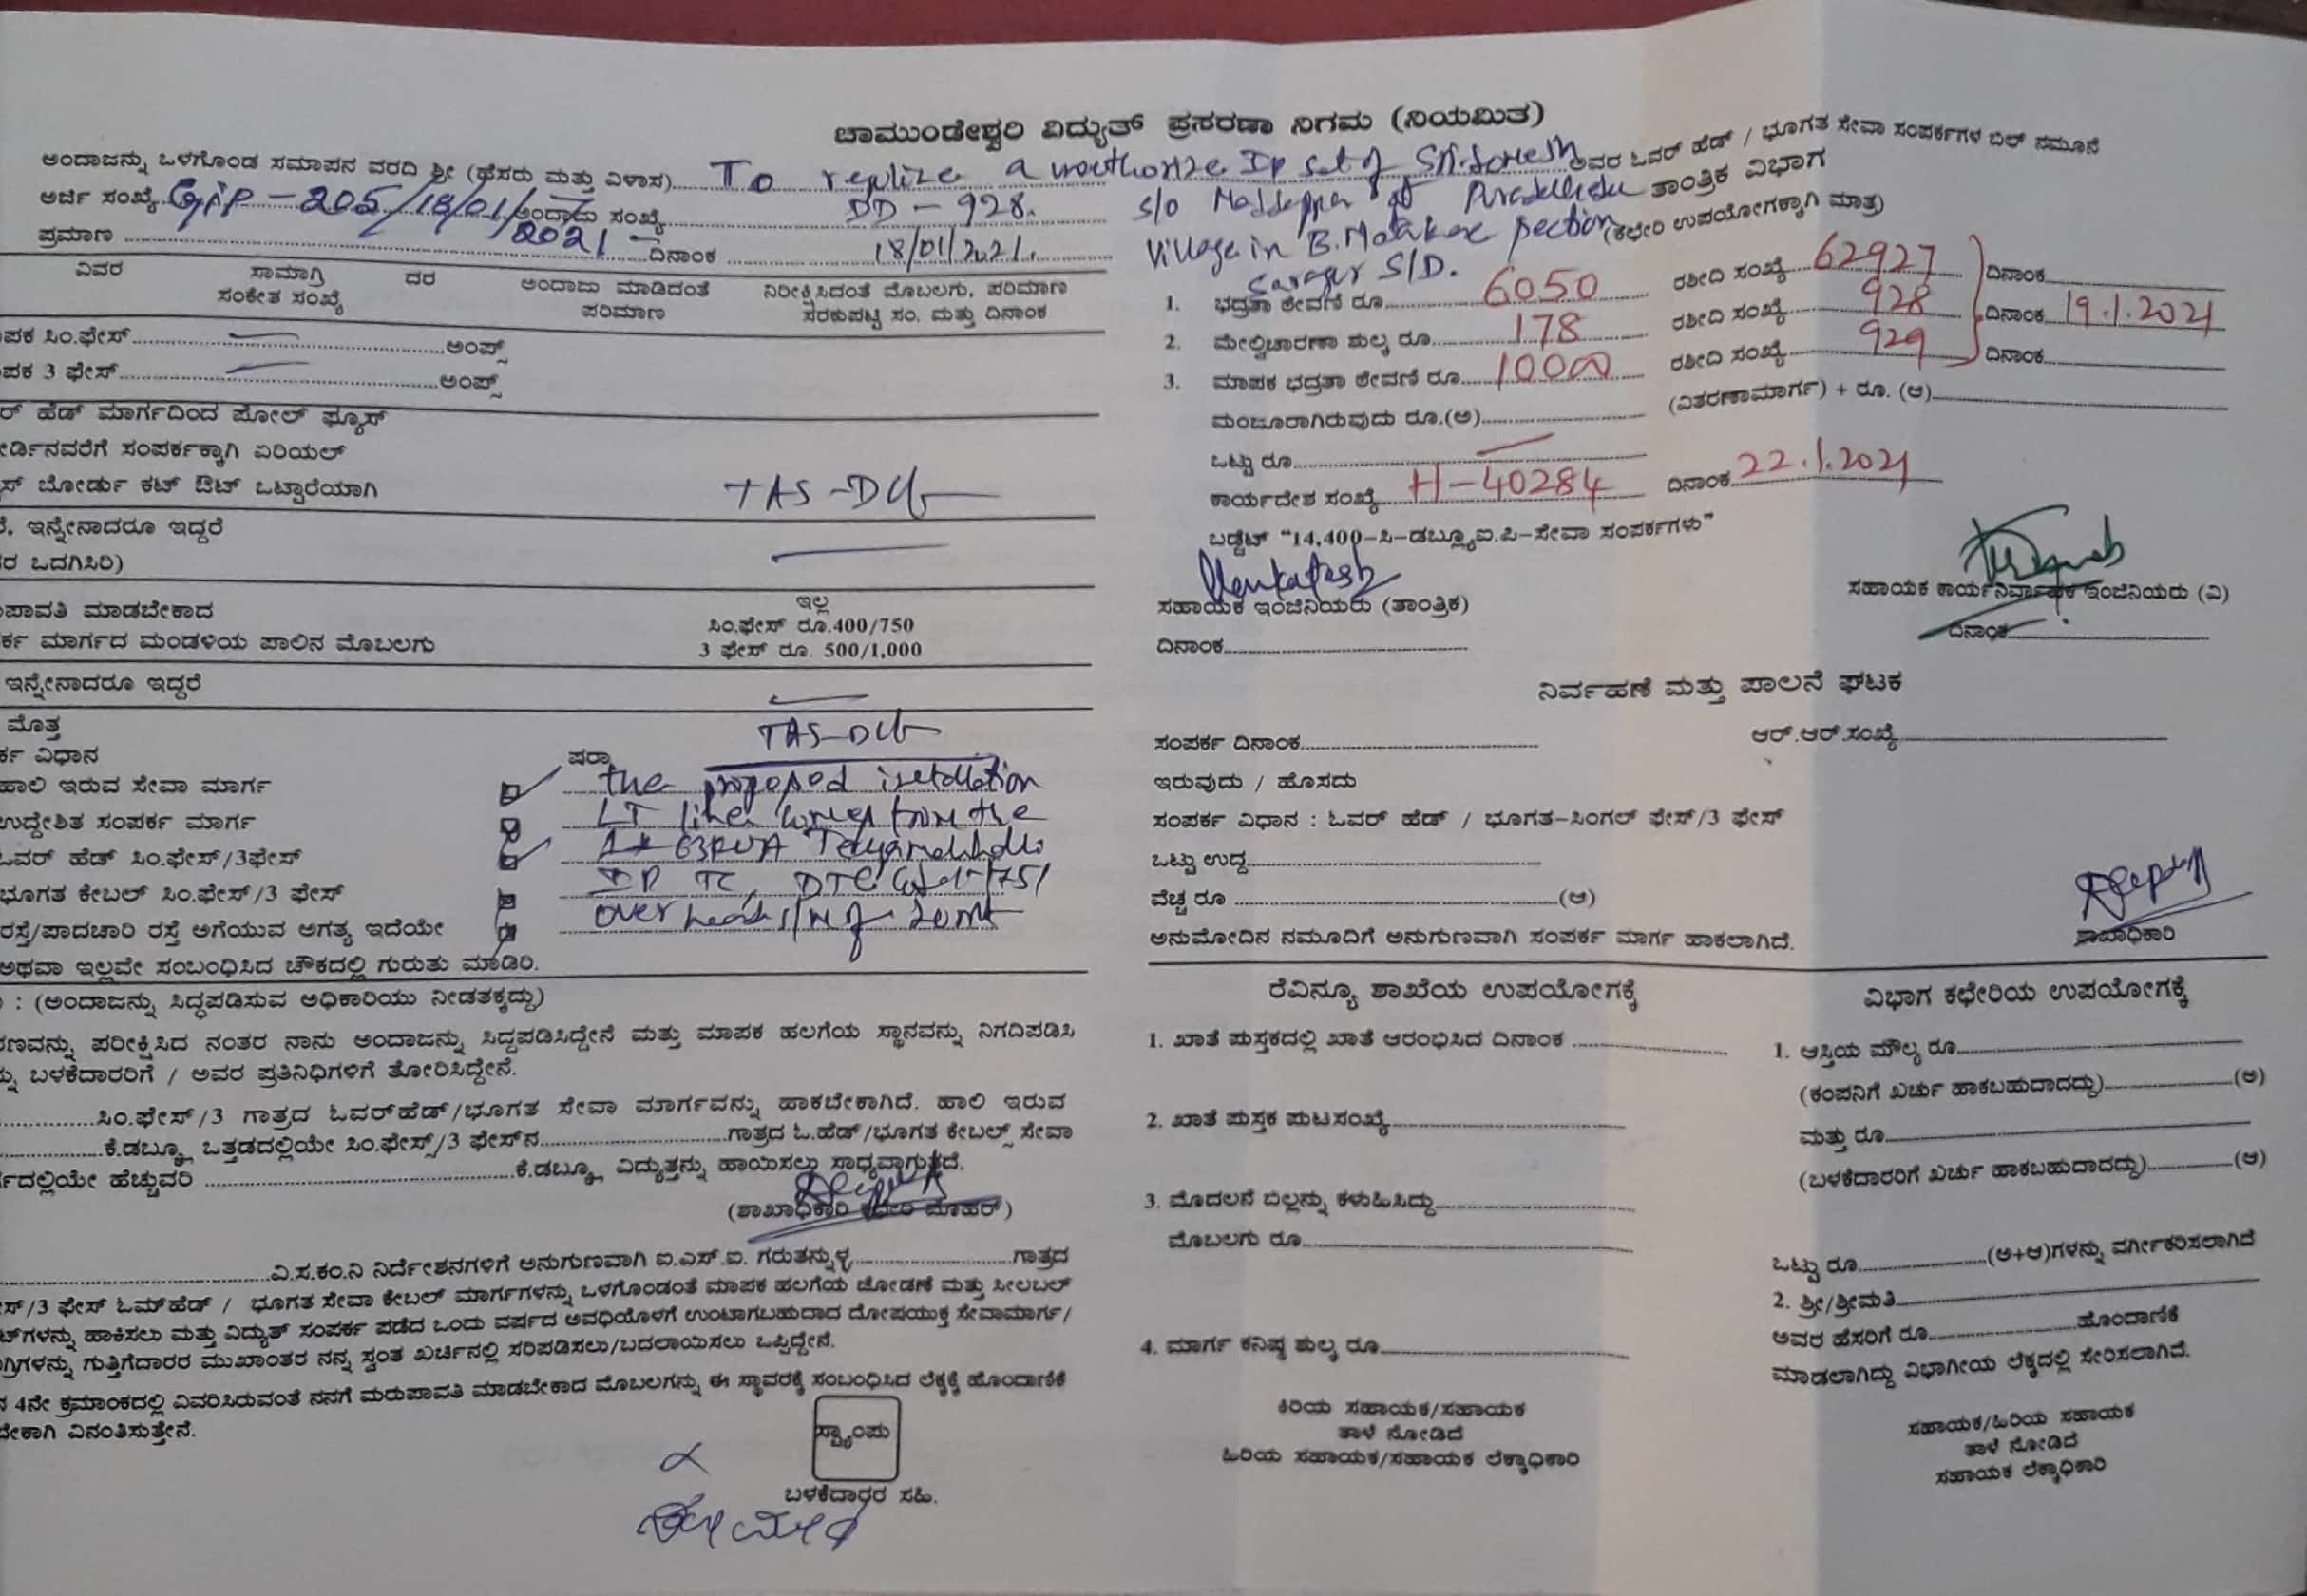 ಚಾಮುಂಡೇಶ್ವರಿ ವಿದ್ಯುತ್ ಪ್ರಸರಣಾ ನಿಗಮ (ನಿಯಮಿತ)
ಅಂದಾಜನ್ನು ಒಳಗೊಂಡ ಸಮಾಪನ ವರದಿ ಶ್ರೀ (ಹೆಸರು ಮತ್ತು ವಿಳಾಸ) To a unauthorize Ip set of ಅವರ ಓವರ್ ಹೆಡ್ / ಭೂಗತ ಸೇವಾ ಸಂಪರ್ಕಗಳ ಬಿಲ್ ನಮೂನೆ
ಅರ್ಜಿ ಸಂಖ್ಯೆ 205/18/01/2021 ಅಂದಾಜು ಸಂಖ್ಯೆ DD-928. S/o at ತಾಂತ್ರಿಕ ವಿಭಾಗ
ಪ್ರಮಾಣ ದಿನಾಂಕ 18/01/2021. village in section (ಕಛೇರಿ ಉಪಯೋಗಕ್ಕಾಗಿ ಮಾತ್ರ)
S/D.
ವಿವರ ಸಾಮಾಗ್ರಿ ಸಂಕೇತ ಸಂಖ್ಯೆ ದರ ಅಂದಾಜು ಮಾಡಿದಂತೆ ಪರಿಮಾಣ ನಿರೀಕ್ಷಿಸಿದಂತೆ ಮೊಬಲಗು, ಪರಿಮಾಣ ಸರಕುಪಟ್ಟಿ ಸಂ. ಮತ್ತು ದಿನಾಂಕ
ಪಕ ಸಿಂ.ಫೇಸ್ ಅಂಪ್ಸ್
ಪಕ 3 ಫೇಸ್ ಅಂಪ್ಸ್
ರ್ ಹೆಡ್ ಮಾರ್ಗದಿಂದ ಪೋಲ್ ಫ್ಯೂಸ್
ರ್ಡಿನವರೆಗೆ ಸಂಪರ್ಕಕ್ಕಾಗಿ ಏರಿಯಲ್
ಸ್ ಬೋರ್ಡು ಕಟ್ ಔಟ್ ಒಟ್ಟಾರೆಯಾಗಿ
, ಇನ್ನೇನಾದರೂ ಇದ್ದರೆ
ರ ಒದಗಿಸಿರಿ)
ಪಾವತಿ ಮಾಡಬೇಕಾದ ಇಲ್ಲ
ರ್ಕ ಮಾರ್ಗದ ಮಂಡಳಿಯ ಪಾಲಿನ ಮೊಬಲಗು ಸಿಂ.ಫೇಸ್ ರೂ.400/750
3 ಫೇಸ್ ರೂ. 500/1,000
ಇನ್ನೇನಾದರೂ ಇದ್ದರೆ
ಮೊತ್ತ
ರ್ಕ ವಿಧಾನ ಷರಾ
ಹಾಲಿ ಇರುವ ಸೇವಾ ಮಾರ್ಗ the proposed
ಉದ್ದೇಶಿತ ಸಂಪರ್ಕ ಮಾರ್ಗ LT line from the
ಓವರ್ ಹೆಡ್ ಸಿಂ.ಫೇಸ್/3ಫೇಸ್ 63KVA
ಭೂಗತ ಕೇಬಲ್ ಸಿಂ.ಫೇಸ್/3 ಫೇಸ್ TC, DTC
ರಸ್ತೆ/ಪಾದಚಾರಿ ರಸ್ತೆ ಅಗೆಯುವ ಅಗತ್ಯ ಇದೆಯೇ over
ಅಥವಾ ಇಲ್ಲವೇ ಸಂಬಂಧಿಸಿದ ಚೌಕದಲ್ಲಿ ಗುರುತು ಮಾಡಿರಿ.
: (ಅಂದಾಜನ್ನು ಸಿದ್ಧಪಡಿಸುವ ಅಧಿಕಾರಿಯು ನೀಡತಕ್ಕದ್ದು)
ರಣವನ್ನು ಪರೀಕ್ಷಿಸಿದ ನಂತರ ನಾನು ಅಂದಾಜನ್ನು ಸಿದ್ದಪಡಿಸಿದ್ದೇನೆ ಮತ್ತು ಮಾಪಕ ಹಲಗೆಯ ಸ್ಥಾನವನ್ನು ನಿಗದಿಪಡಿಸಿ
ಬಳಕೆದಾರರಿಗೆ / ಅವರ ಪ್ರತಿನಿಧಿಗಳಿಗೆ ತೋರಿಸಿದ್ದೇನೆ.
ಸಿಂ.ಫೇಸ್/3 ಗಾತ್ರದ ಓವರ್‌ಹೆಡ್/ಭೂಗತ ಸೇವಾ ಮಾರ್ಗವನ್ನು ಹಾಕಬೇಕಾಗಿದೆ. ಹಾಲಿ ಇರುವ
ಕೆ.ಡಬ್ಲ್ಯೂ ಒತ್ತಡದಲ್ಲಿಯೇ ಸಿಂ.ಫೇಸ್/3 ಫೇಸ್‌ನ ಗಾತ್ರದ ಓ.ಹೆಡ್/ಭೂಗತ ಕೇಬಲ್ಸ್ ಸೇವಾ
ರ್ಗದಲ್ಲಿಯೇ ಹೆಚ್ಚುವರಿ ಕೆ.ಡಬ್ಲ್ಯೂ ವಿದ್ಯುತ್ತನ್ನು ಹಾಯಿಸಲು ಸಾಧ್ಯವಾಗುತ್ತದೆ.
(ಶಾಖಾಧಿಕಾರಿ ಕಛೇರಿ ಮೊಹರ್)
ವಿ.ಸ.ಕಂ.ನಿ ನಿರ್ದೇಶನಗಳಿಗೆ ಅನುಗುಣವಾಗಿ ಐ.ಎಸ್.ಐ. ಗರುತನ್ನುಳ್ಳ ಗಾತ್ರದ
ಸ್/3 ಫೇಸ್ ಓಮ್‌ಹೆಡ್ / ಭೂಗತ ಸೇವಾ ಕೇಬಲ್ ಮಾರ್ಗಗಳನ್ನು ಒಳಗೊಂಡಂತೆ ಮಾಪಕ ಹಲಗೆಯ ಜೋಡಣೆ ಮತ್ತು ಸೀಲಬಲ್
ಟ್‌ಗಳನ್ನು ಹಾಕಿಸಲು ಮತ್ತು ವಿದ್ಯುತ್ ಸಂಪರ್ಕ ಪಡೆದ ಒಂದು ವರ್ಷದ ಅವಧಿಯೊಳಗೆ ಉಂಟಾಗಬಹುದಾದ ದೋಷಯುಕ್ತ ಸೇವಾಮಾರ್ಗ/
ಗ್ರಿಗಳನ್ನು ಗುತ್ತಿಗೆದಾರರ ಮುಖಾಂತರ ನನ್ನ ಸ್ವಂತ ಖರ್ಚಿನಲ್ಲಿ ಸರಿಪಡಿಸಲು/ಬದಲಾಯಿಸಲು ಒಪ್ಪಿದ್ದೇನೆ.
4ನೇ ಕ್ರಮಾಂಕದಲ್ಲಿ ವಿವರಿಸಿರುವಂತೆ ನನಗೆ ಮರುಪಾವತಿ ಮಾಡಬೇಕಾದ ಮೊಬಲಗನ್ನು ಈ ಸ್ಥಾವರಕ್ಕೆ ಸಂಬಂಧಿಸಿದ ಲೆಕ್ಕಕ್ಕೆ ಹೊಂದಾಣಿಕೆ
ಬೇಕಾಗಿ ವಿನಂತಿಸುತ್ತೇನೆ.
ಸ್ಟ್ಯಾಂಪು
ಬಳಕೆದಾರರ ಸಹಿ.
1. ಭದ್ರತಾ ಠೇವಣಿ ರೂ. 6050 ರಶೀದಿ ಸಂಖ್ಯೆ 62927 ದಿನಾಂಕ
2. ಮೇಲ್ವಿಚಾರಣಾ ಶುಲ್ಕ ರೂ. 178 ರಶೀದಿ ಸಂಖ್ಯೆ 928 ದಿನಾಂಕ 19.1.2021
3. ಮಾಪಕ ಭದ್ರತಾ ಠೇವಣಿ ರೂ. 10000 ರಶೀದಿ ಸಂಖ್ಯೆ 929 ದಿನಾಂಕ
ಮಂಜೂರಾಗಿರುವುದು ರೂ.(ಅ) (ವಿತರಣಾಮಾರ್ಗ) + ರೂ. (ಆ)
ಒಟ್ಟು ರೂ.
ಕಾರ್ಯದೇಶ ಸಂಖ್ಯೆ H-40284 ದಿನಾಂಕ 22.1.2021
ಬಡ್ಜೆಟ್ "14,400-ಸಿ-ಡಬ್ಲ್ಯೂಐ.ಪಿ-ಸೇವಾ ಸಂಪರ್ಕಗಳು"
Venkatesh
ಸಹಾಯಕ ಇಂಜಿನಿಯರು (ತಾಂತ್ರಿಕ) ಸಹಾಯಕ ಕಾರ್ಯನಿರ್ವಾಹಕ ಇಂಜಿನಿಯರು (ವಿ)
ದಿನಾಂಕ ದಿನಾಂಕ
ನಿರ್ವಹಣೆ ಮತ್ತು ಪಾಲನೆ ಘಟಕ
ಸಂಪರ್ಕ ದಿನಾಂಕ ಆರ್.ಆರ್.ಸಂಖ್ಯೆ
ಇರುವುದು / ಹೊಸದು
ಸಂಪರ್ಕ ವಿಧಾನ : ಓವರ್ ಹೆಡ್ / ಭೂಗತ-ಸಿಂಗಲ್ ಫೇಸ್/3 ಫೇಸ್
ಒಟ್ಟು ಉದ್ದ
ವೆಚ್ಚ ರೂ (ಆ)
ಅನುಮೋದಿನ ನಮೂದಿಗೆ ಅನುಗುಣವಾಗಿ ಸಂಪರ್ಕ ಮಾರ್ಗ ಹಾಕಲಾಗಿದೆ. ಶಾಖಾಧಿಕಾರಿ
ರೆವಿನ್ಯೂ ಶಾಖೆಯ ಉಪಯೋಗಕ್ಕೆ
1. ಖಾತೆ ಪುಸ್ತಕದಲ್ಲಿ ಖಾತೆ ಆರಂಭಿಸಿದ ದಿನಾಂಕ
2. ಖಾತೆ ಪುಸ್ತಕ ಪುಟಸಂಖ್ಯೆ
3. ಮೊದಲನೆ ಬಿಲ್ಲನ್ನು ಕಳುಹಿಸಿದ್ದು
ಮೊಬಲಗು ರೂ.
4. ಮಾರ್ಗ ಕನಿಷ್ಠ ಶುಲ್ಕ ರೂ.
ಕಿರಿಯ ಸಹಾಯಕ/ಸಹಾಯಕ
ತಾಳೆ ನೋಡಿದೆ
ಹಿರಿಯ ಸಹಾಯಕ/ಸಹಾಯಕ ಲೆಕ್ಕಾಧಿಕಾರಿ
ವಿಭಾಗ ಕಛೇರಿಯ ಉಪಯೋಗಕ್ಕೆ
1. ಆಸ್ತಿಯ ಮೌಲ್ಯ ರೂ.
(ಕಂಪನಿಗೆ ಖರ್ಚು ಹಾಕಬಹುದಾದದ್ದು) (ಅ)
ಮತ್ತು ರೂ.
(ಬಳಕೆದಾರರಿಗೆ ಖರ್ಚು ಹಾಕಬಹುದಾದದ್ದು) (ಆ)
ಒಟ್ಟು ರೂ. (ಅ+ಆ)ಗಳನ್ನು ವರ್ಗೀಕರಿಸಲಾಗಿದೆ
2. ಶ್ರೀ/ಶ್ರೀಮತಿ
ಅವರ ಹೆಸರಿಗೆ ರೂ. ಹೊಂದಾಣಿಕೆ
ಮಾಡಲಾಗಿದ್ದು ವಿಭಾಗೀಯ ಲೆಕ್ಕದಲ್ಲಿ ಸೇರಿಸಲಾಗಿದೆ.
ಸಹಾಯಕ/ಹಿರಿಯ ಸಹಾಯಕ
ತಾಳೆ ನೋಡಿದೆ
ಸಹಾಯಕ ಲೆಕ್ಕಾಧಿಕಾರಿ